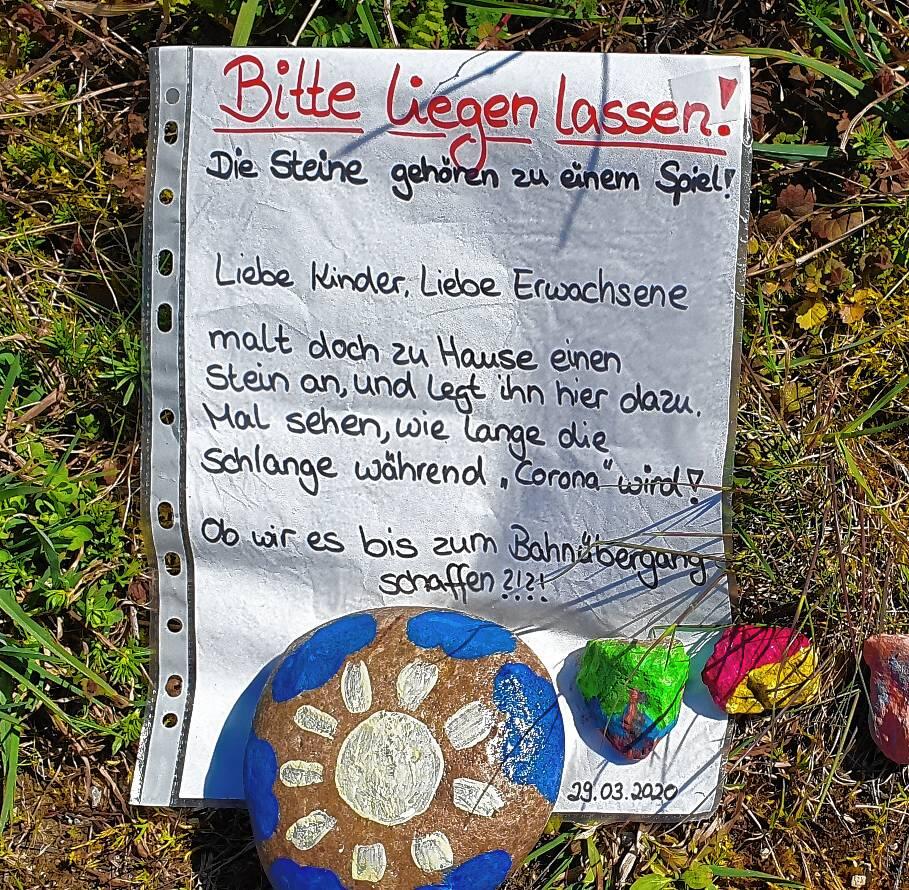 Bitte liegen lassen!
Die Steine gehören zu einem Spiel!
Liebe Kinder, Liebe Erwachsene
malt doch zu Hause einen
Stein an, und legt ihn hier dazu.
Mal sehen, wie lange die
Schlange während „Corona" wird!
Ob wir es bis zum Bahnübergang
schaffen?!?!
29.03.2020